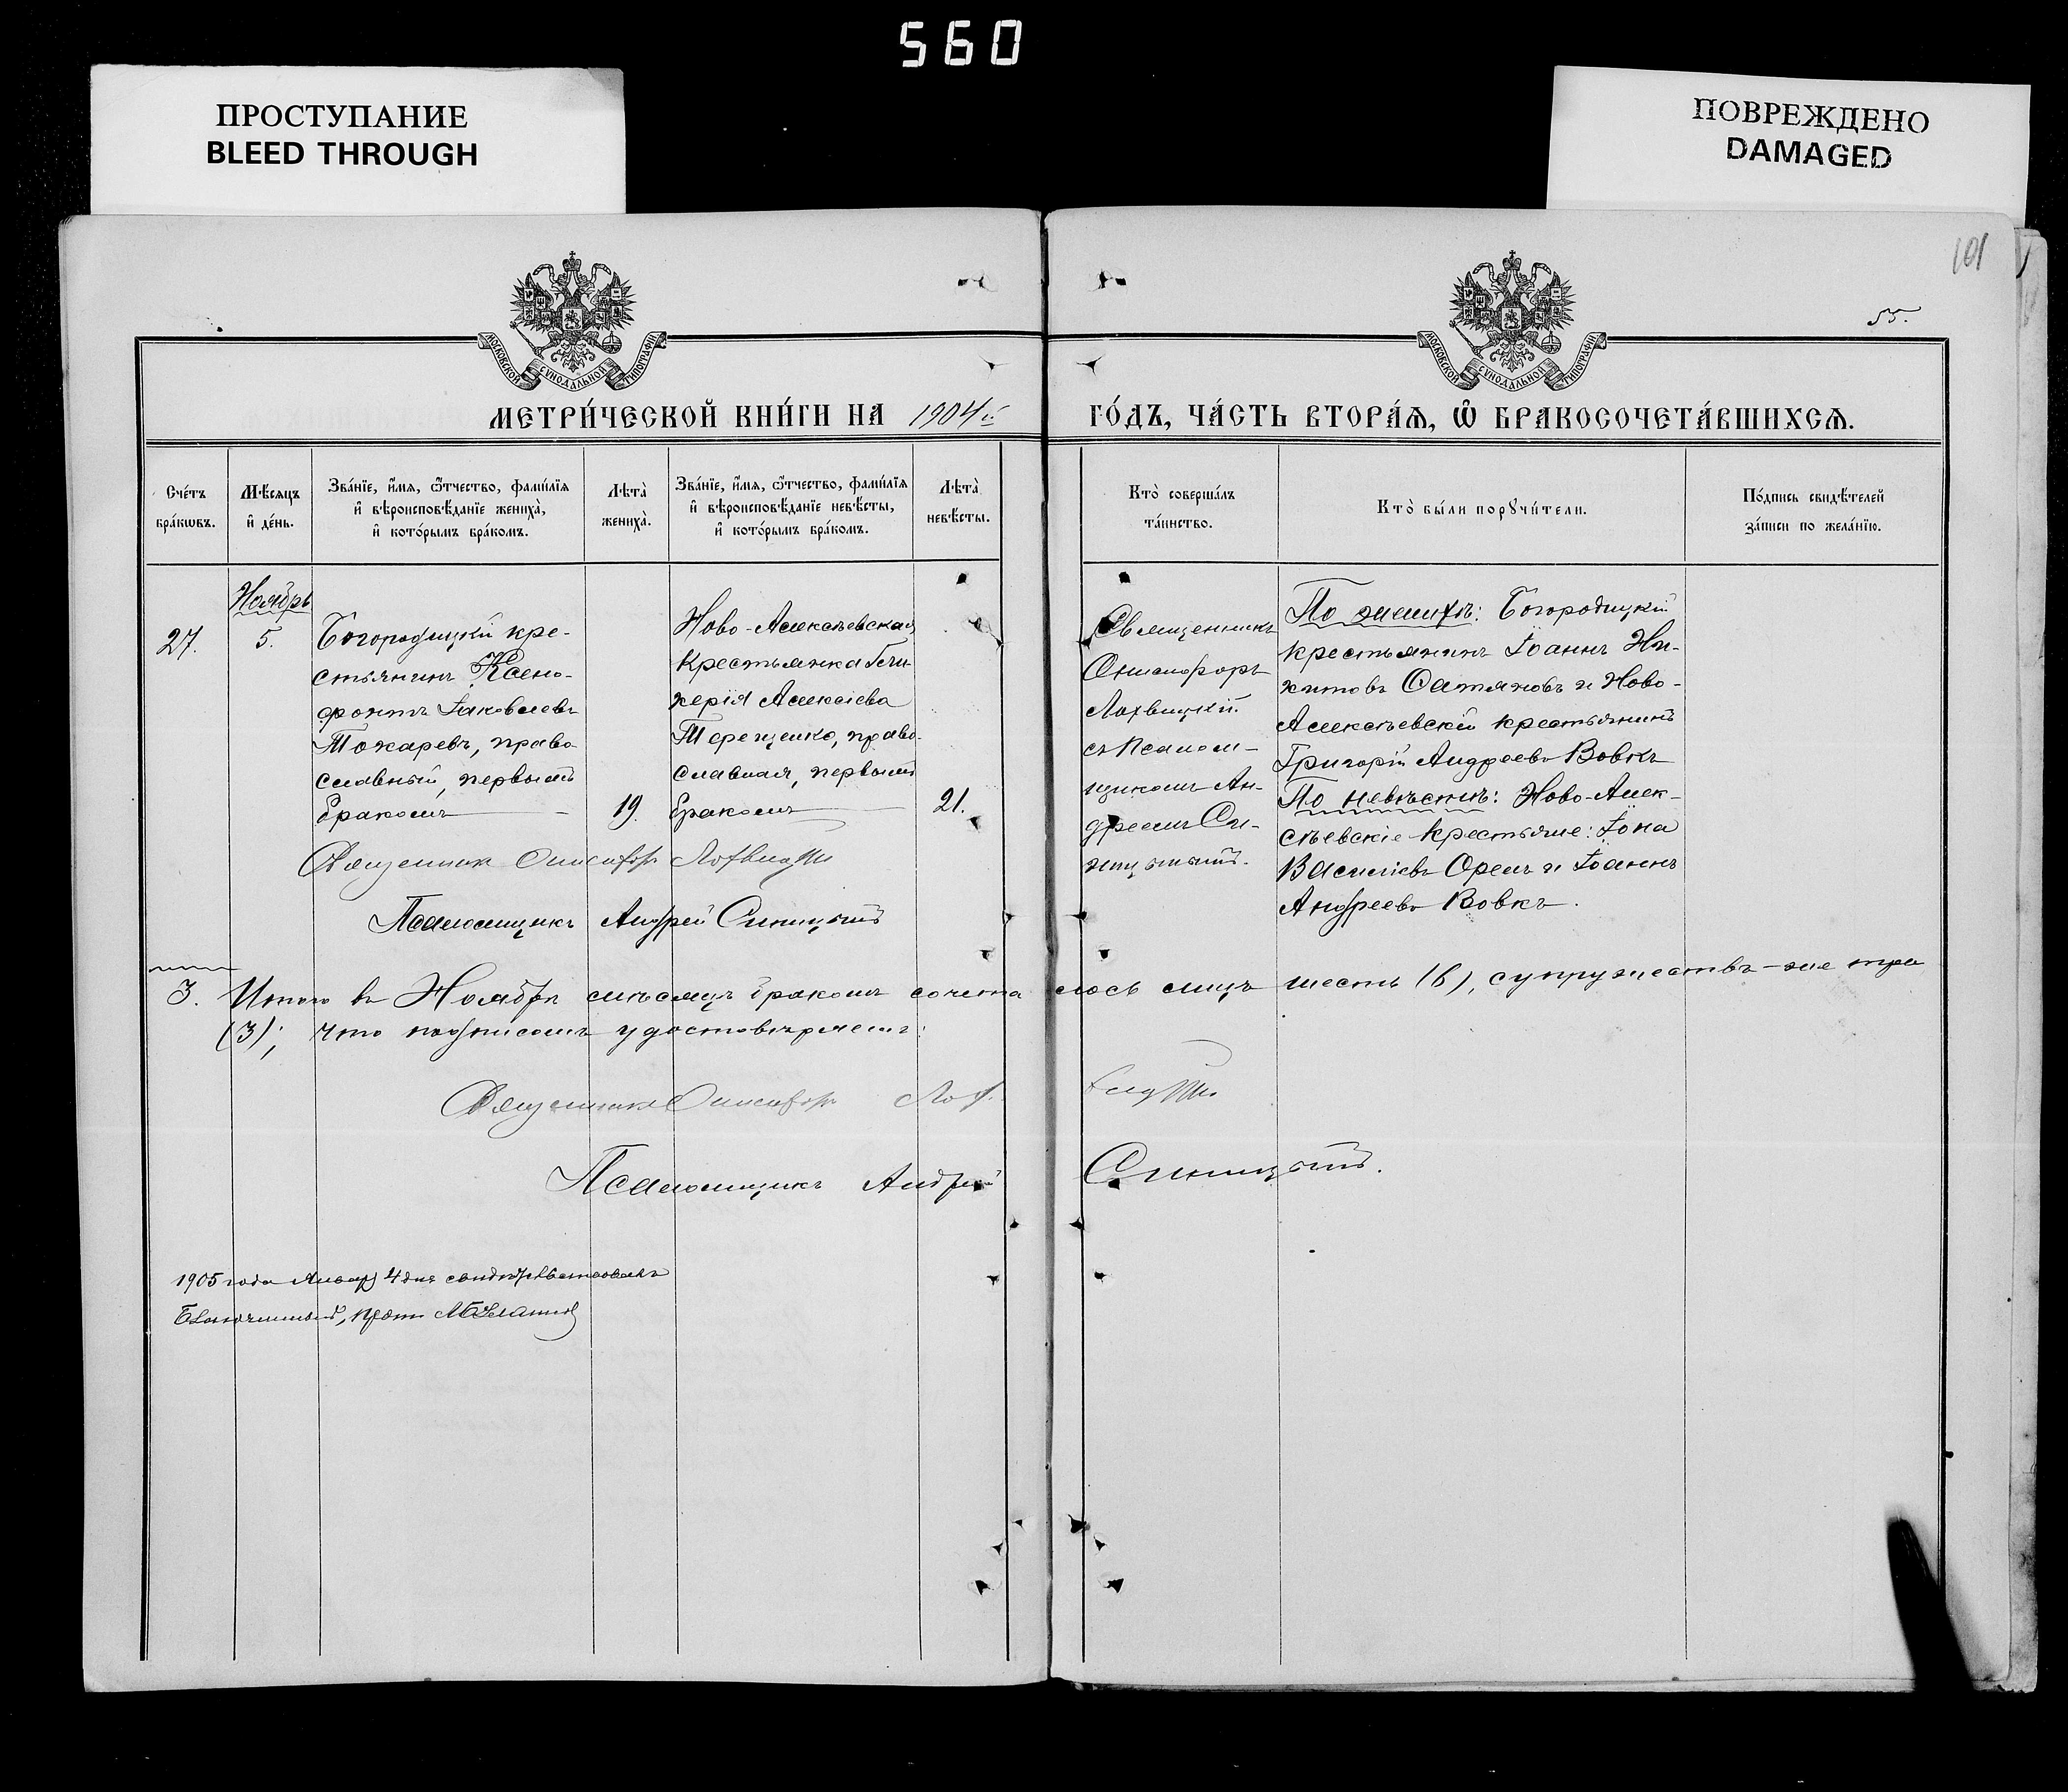 560
ПРОСТУПАНИЕ
BLEED THROUGH
ПОВРЕЖДЕНО
DAMAGED
101
55.
МОСКОВСКОЙ СУНОДАЛЬНОЙ ТИПОГРАФІИ
МОСКОВСКОЙ СУНОДАЛЬНОЙ ТИПОГРАФІИ
МЕТРИ́ЧЕСКОЙ КНИ́ГИ НА 1904й ГО́ДЪ, ЧА́СТЬ ВТОРА́Ѧ, Ѽ БРАКОСОЧЕТА́ВШИХСѦ.
Сче́тъ
бра́кѡвъ.
Мѣ́сѧцъ
и҆ де́нь.
Зва́нїе, и҆́мѧ, ѻ҆́тчество, фами́лїѧ
и҆ вѣроисповѣ́данїе жениха̀,
и҆ кото́рымъ бра́комъ.
Лѣта̀
жениха̀.
Зва́нїе, и҆́мѧ, ѻ҆́тчество, фами́лїѧ
и҆ вѣроисповѣ́данїе невѣ́сты,
и҆ кото́рымъ бра́комъ.
Лѣта̀
невѣ́сты.
Кто̀ соверша́лъ
та́инство.
Кто̀ бы́ли порꙋчи́тели.
По́дпись свидѣ́телей
за́писи по жела́нїю.
27.
Ноябрь
5.
Богородицкій кре-
стьянинъ Ксено-
фонтъ Іаковлевъ
Токаревъ, право
славный, первымъ
бракомъ
19.
Ново-Алексѣевская
крестьянка Гли
керія Алексіева
Терещенко, право-
славная, первымъ
бракомъ
21.
Священникъ
Онисифоръ
Лохвицкій
съ Псалом-
щикомъ Ан-
дреемъ Си-
ницкимъ.
По женихѣ: Богородицкій
крестьянинъ Іоаннъ Ни-
китовъ Сатяновъ и Ново-
Алексѣевскій крестьянинъ
Григорій Андреевъ Вовкъ
По невѣстѣ: Ново-Алек-
сѣевскіе крестьяне: Іона
Василіевъ Орелъ и Іоаннъ
Андреевъ Вовкъ.
Священник Онисифоръ Лохвицкій
Псаломщикъ Андрей Синицкій
3. Итого въ Ноябрѣ мѣсяцѣ бракомъ сочеталось лицъ шесть (6), супружествъ-же три
(3); что подписомъ удостовѣряемъ:
Священник Онисифоръ Лохвицкій
Псаломщикъ Андрей Синицкій.
1905 года Января 4 дня свидѣтельствовалъ
Благочинный, прот.